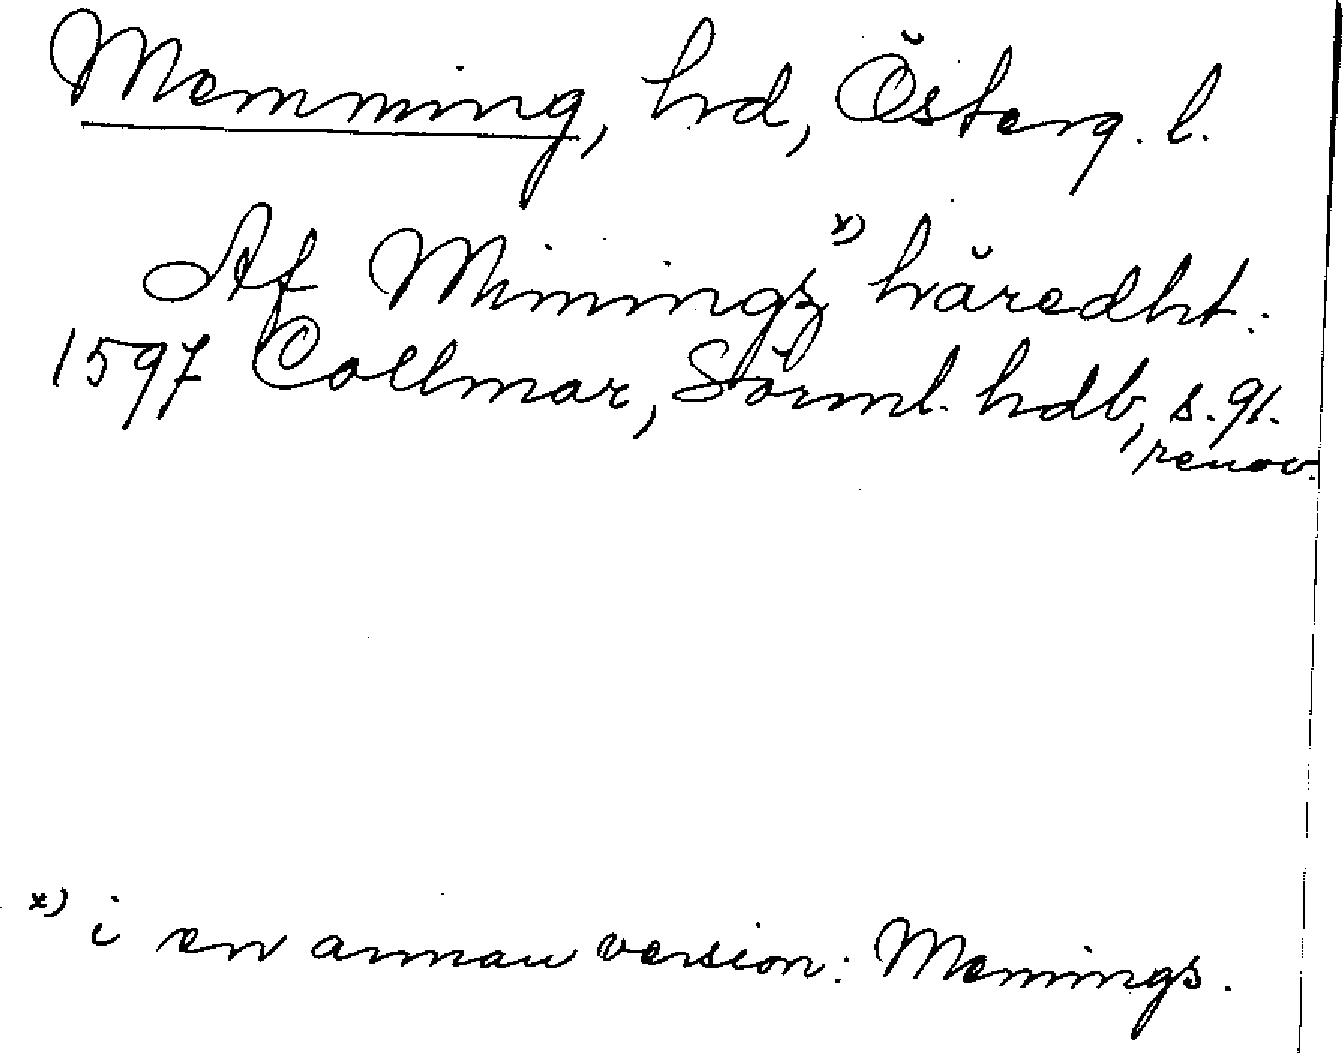 Memming, hd, Österg. l.
Af Minings x) häredht.
1597 Collmar, Sörml. hdb, s. 91.
renov.
x) i en annan version: Memings.